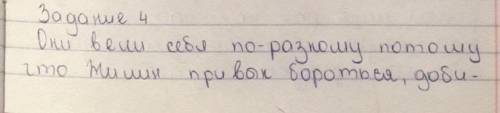 Задание 4
Они вели себя по-разному потому
что Жилин привык бороться, доби-